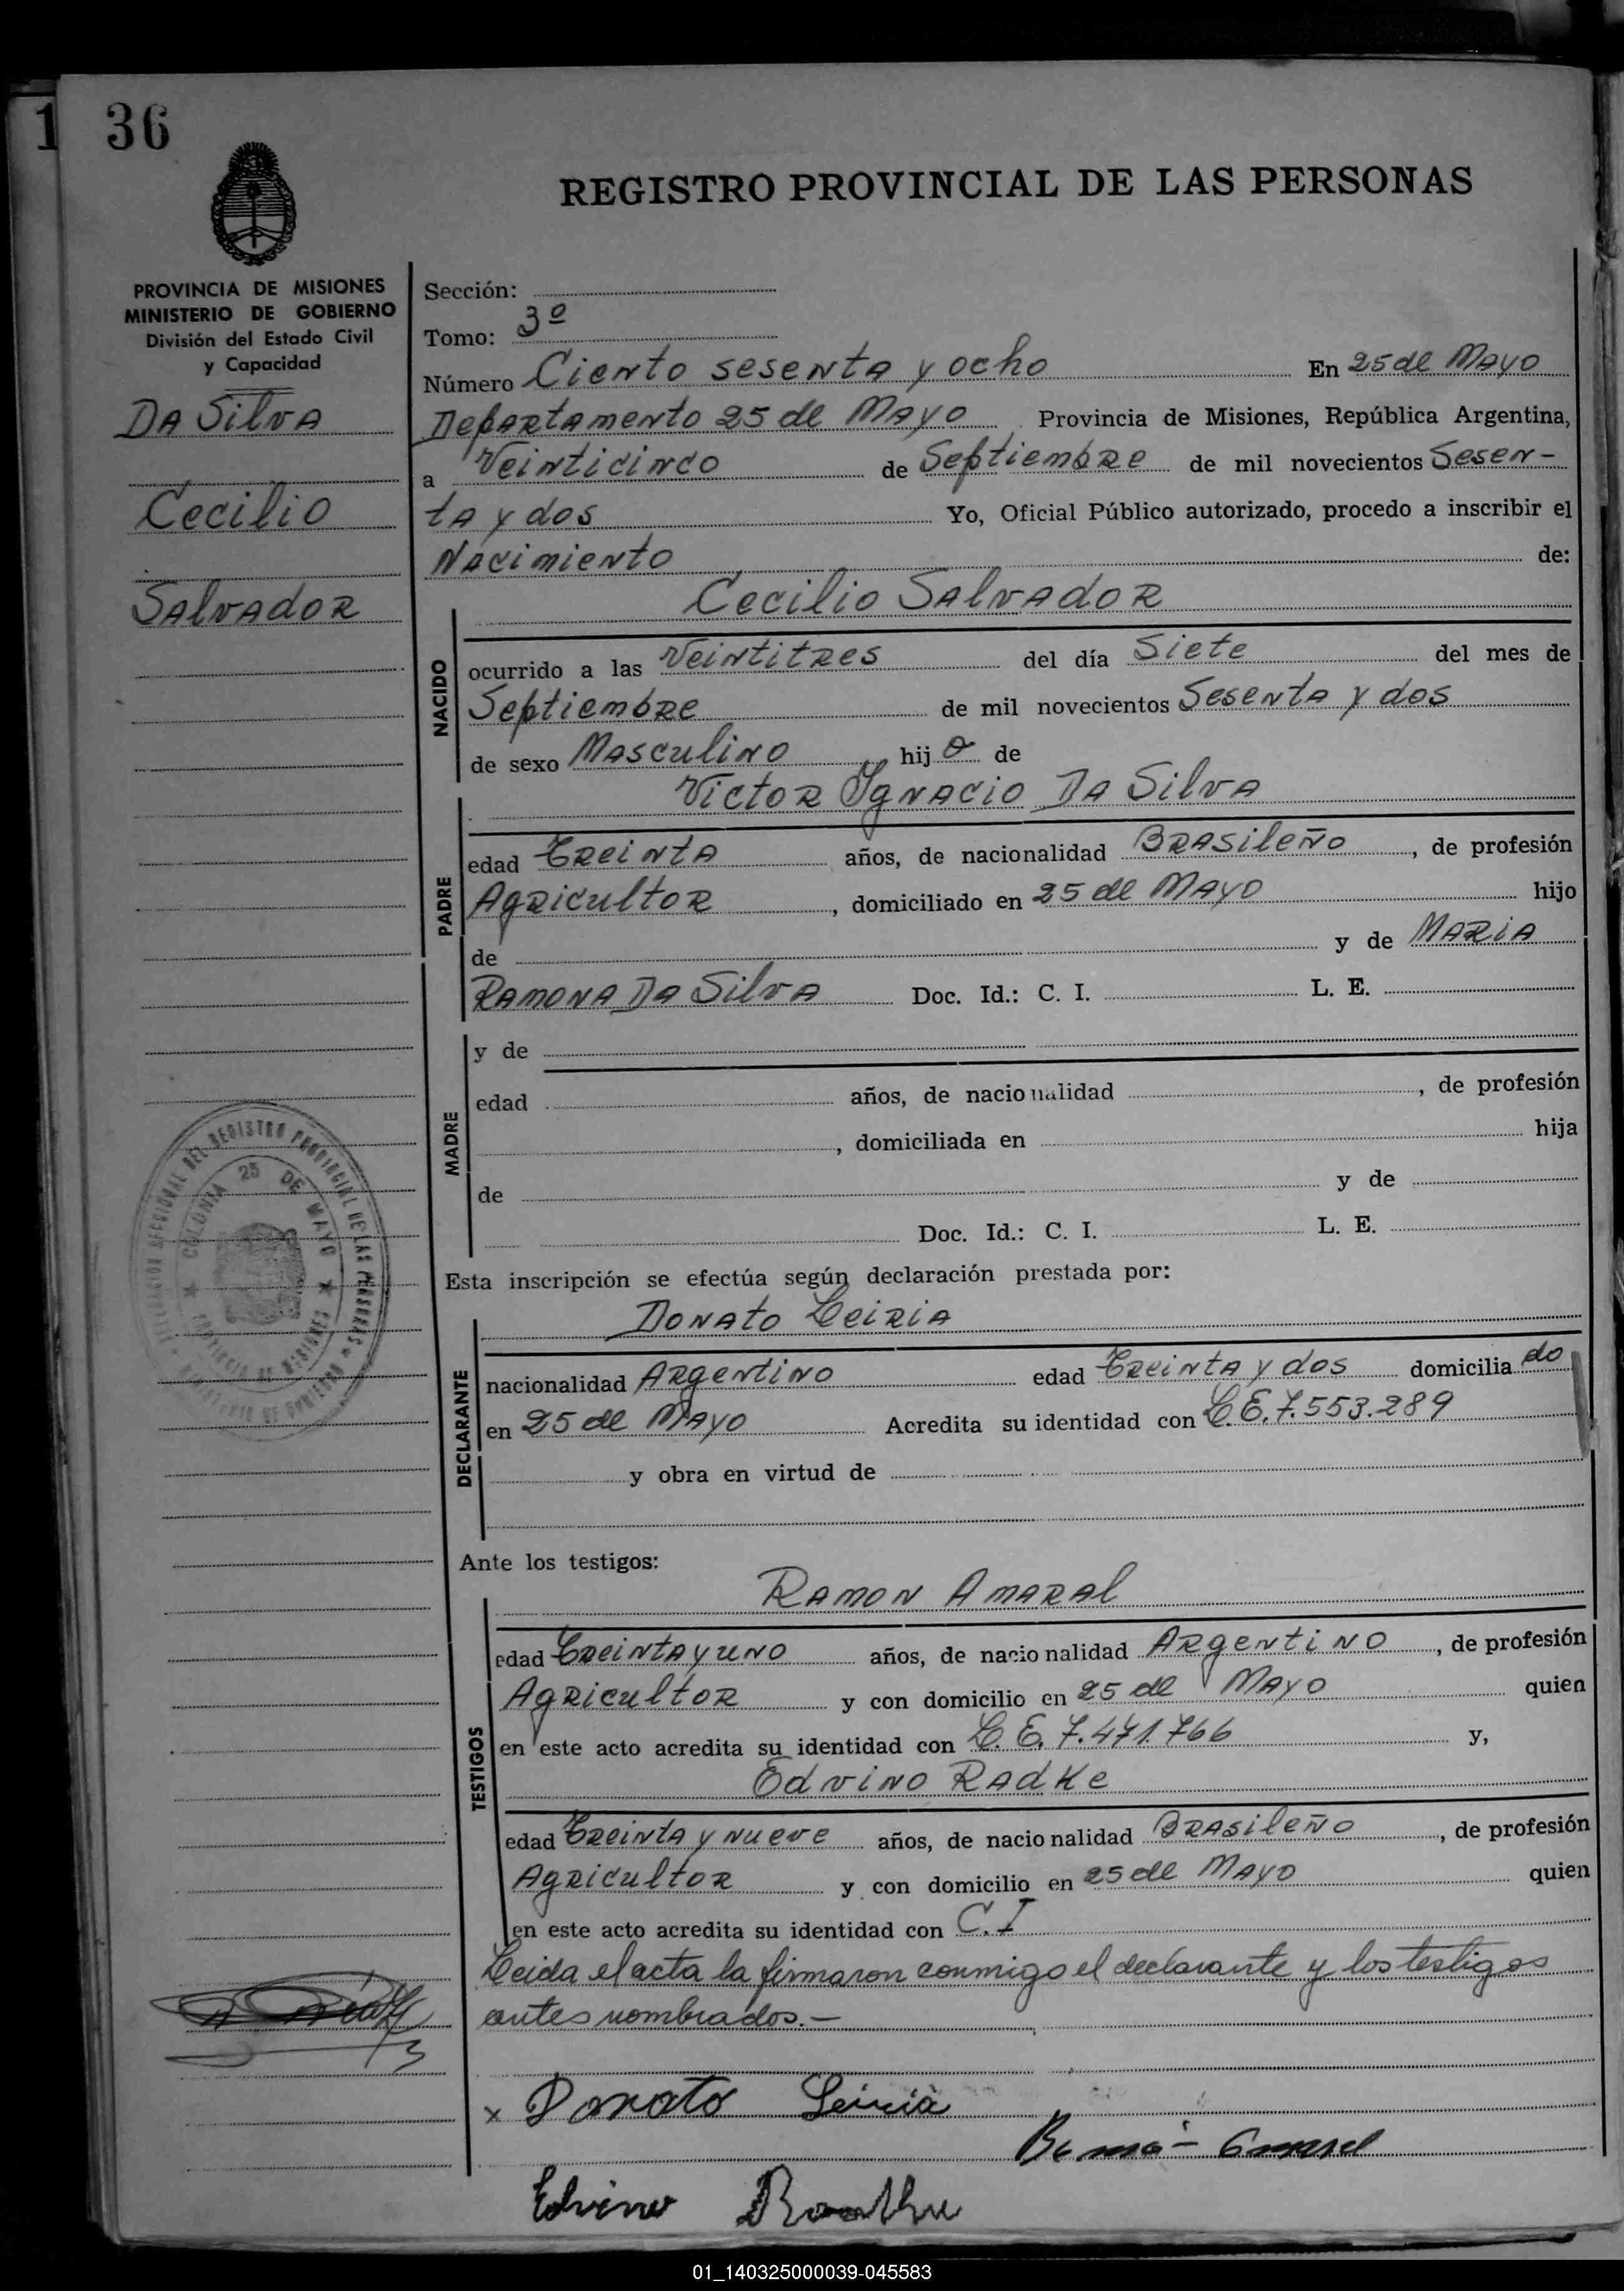 1 36
REGISTRO PROVINCIAL DE LAS PERSONAS
PROVINCIA DE MISIONES
MINISTERIO DE GOBIERNO
División del Estado Civil
y Capacidad
Da Silva
Cecilio
Salvador
Sección:
Tomo: 3º
Número Ciento sesenta y ocho En 25 de Mayo
Departamento 25 de Mayo Provincia de Misiones, República Argentina,
a Veinticinco de Septiembre de mil novecientos Sesen-
ta y dos Yo, Oficial Público autorizado, procedo a inscribir el
Nacimiento de:
Cecilio Salvador
NACIDO
ocurrido a las Veintitres del día Siete del mes de
Septiembre de mil novecientos Sesenta y dos
de sexo Masculino hij o de
Victor Ygnacio Da Silva
PADRE
edad Treinta años, de nacionalidad Brasileño, de profesión
Agricultor, domiciliado en 25 de Mayo hijo
de y de Maria
Ramona Da Silva Doc. Id.: C. I. L. E.
MADRE
y de
edad años, de nacionalidad , de profesión
, domiciliada en hija
de y de
Doc. Id.: C. I. L. E.
COLONIA 25 DE MAYO
Esta inscripción se efectúa según declaración prestada por:
Donato Leiria
DECLARANTE
nacionalidad Argentino edad Treinta y dos domicilia do
en 25 de Mayo Acredita su identidad con L.E. 7.553.289
y obra en virtud de
Ante los testigos:
Ramon Amaral
TESTIGOS
edad Treinta y uno años, de nacionalidad Argentino, de profesión
Agricultor y con domicilio en 25 de Mayo quien
en este acto acredita su identidad con L.E. 7.471.766 y,
Edvino Radke
edad Treinta y nueve años, de nacionalidad Brasileño, de profesión
Agricultor y con domicilio en 25 de Mayo quien
en este acto acredita su identidad con C.I
Leida el acta la firmaron conmigo el declarante y los testigos
antes nombrados.-
x Donato Leiria
01_140325000039-045583